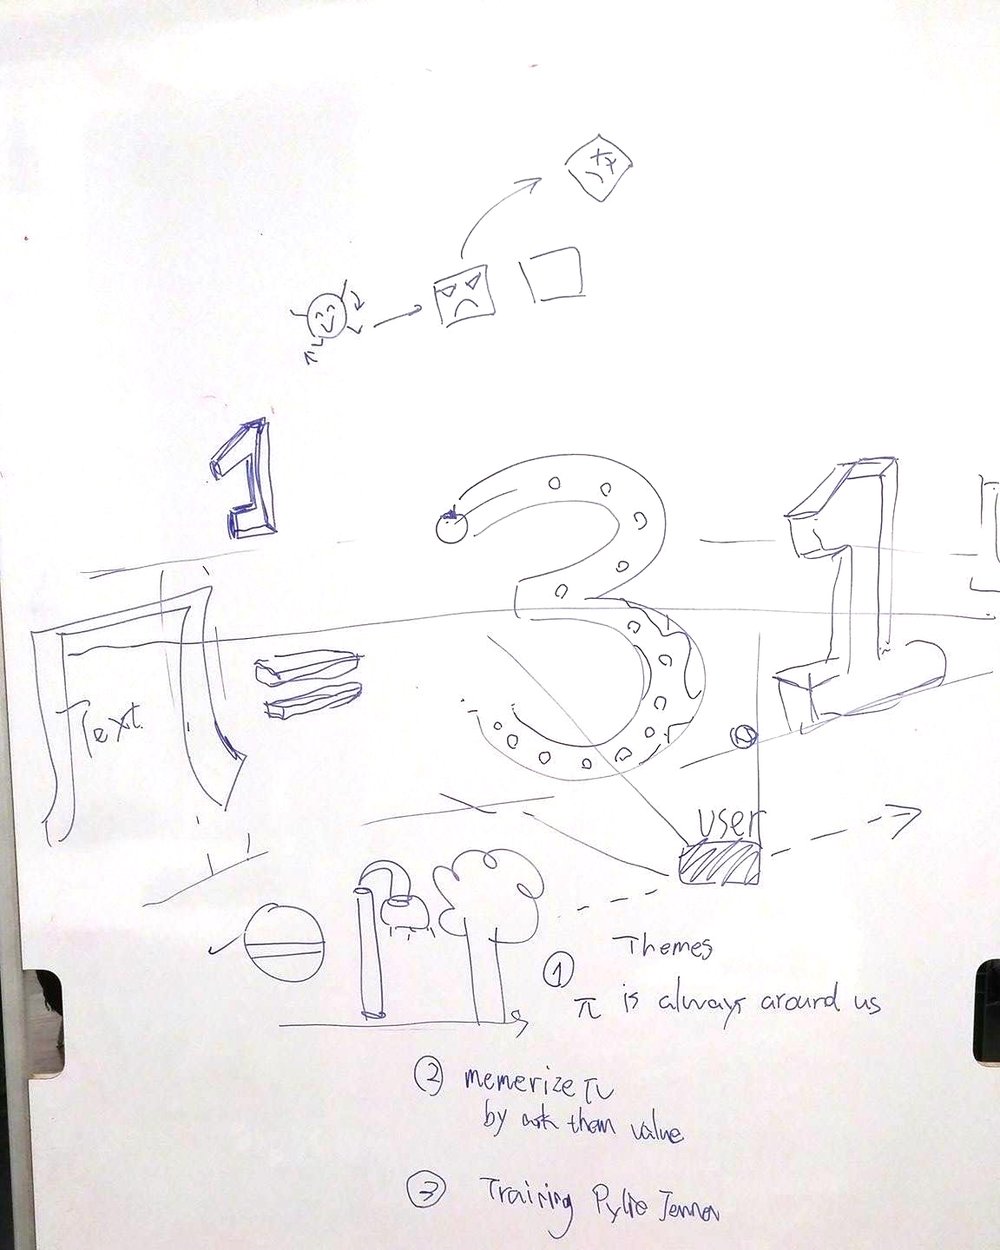 1
3 1
π =
Text
user
Themes
① π is always around us
② memerize π
by ask them value
③ Training Pylie Jenner